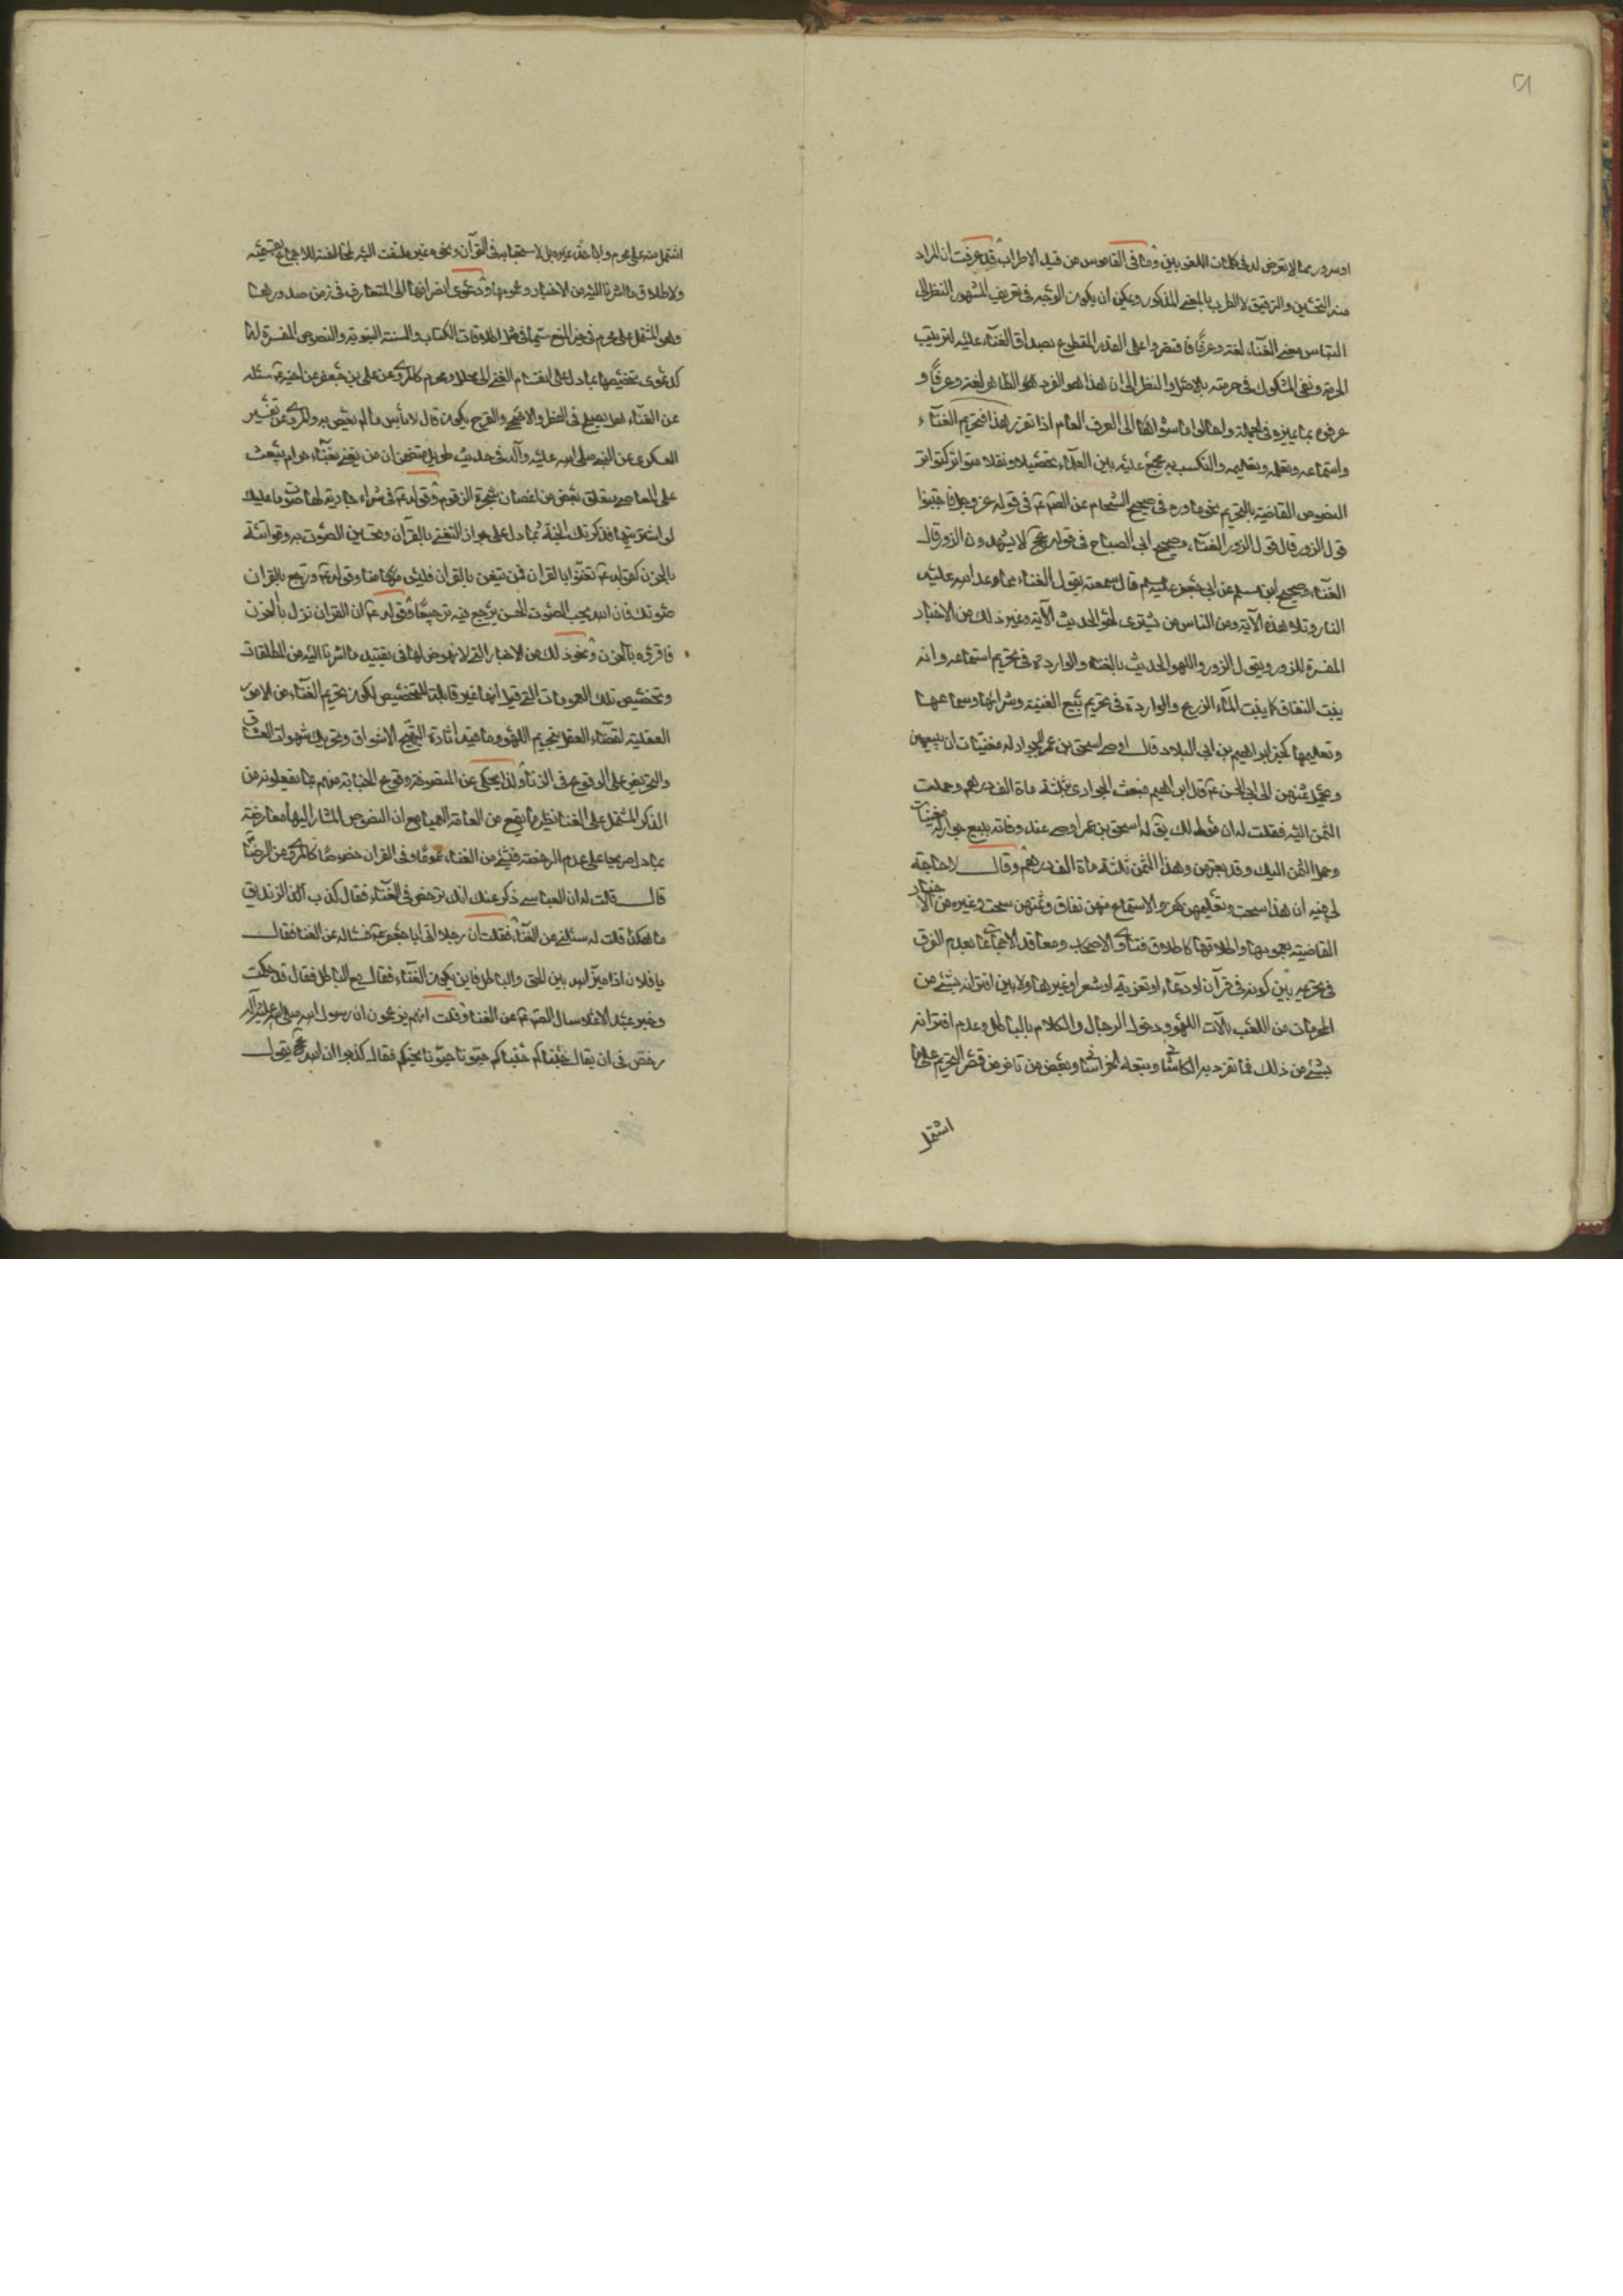 ۵۱
او سرور مما لا تعرض له فی کلمات اللغویین وما فی القاموس من قید الاطراب قد عرفت ان المراد
منه التحسین والترقیق لا الطرب بالمعنی المذکور ویمکن ان یکون الوجه فی تعریف المشهور النظر الی
التباس معنی الغناء لغة وعرفا فاقتصروا علی القدر المقطوع بصداق الغناء علیه لترتیب
الحرمة ونفی المشکوک فی حرمته بالاصل او النظر الی ان هذا هو الفرد الظاهر لغة وعرفا و
عرفوه بما یمیزه فی الجملة واحالوا ما سواها الی العرف العام اذا تقرر هذا فتحریم الغناء
واستماعه وتعلمه وتعلیمه والتکسب به مجمع علیه بین العلماء تحصیلا ونقلا متواترا کتواتر
النصوص القاضیة بالتحریم نحو ما ورد فی صحیح الشحام عن الصم عم فی قوله عز وجل فاجتنبوا
قول الزور قال قول الزور الغناء وصحیح ابی الصباح فی قوله عج لا یشهدون الزور قال
الغناء وصحیح ابن مسلم عن ابی جعفر علیه سم قال سمعته یقول الغناء مما وعد الله علیه
النار وتلا هذه الآیة ومن الناس من یشتری لهو الحدیث الآیة وغیر ذلک من الاخبار
المفسرة للزور وبقول الزور واللهو الحدیث بالغناء والواردة فی تحریم استماعه وانه
ینبت النفاق کما ینبت الماء الزرع والواردة فی تحریم بیع المغنیة وشرائها وسماعها
وتعلیمها کخبر ابراهیم بن ابی البلاد قال اوصی اسحق بن عمر بجوار له مغنیات ان یبیعهن
ویحمل ثمنهن الی ابی الحسن عم قال ابراهیم فبعت الجواری بثلثة ماة الف درهم وحملت
الثمن الیه فقلت له ان مولی لک یق له اسحق بن عمر اوصی عند وفاته ببیع جوار له مغنیات
وحمل الثمن الیک وقد بعتهن وهذا الثمن ثلثة ماة الف درهم وقال لا حاجة
لی فیه ان هذا سحت وتعلیمهن کفر والاستماع منهن نفاق وثمنهن سحت وغیره من الاخبار
القاضیة بعمومها واطلاقها کاطلاق فتاوی الاصحاب ومعاقد الاجماعات بعدم الفرق
فی تحریمه بین کونه فی قرآن او دعاء او تعزیة او شعر او غیرها ولا بین اقترانه بشئ من
المحرمات من اللعب بآلات اللهو ودخول الرجال والکلام بالباطل وعدم اقترانه
بشئ من ذلک فما تفرد به الکاشانی وتبعه الخراسانی وبعض من تاخر من قصر التحریم علی ما
اشتمل
اشتمل منه علی محرم واباحة غیره بل لاستحبابه فی القرآن ونحوه غیر ملتفت الیه لمخالفته للاجماع بقسمیه
ولاطلاق ما اشرنا الیه من الاخبار وعمومها ودعوی انصرافها الی المتعارف فی زمن صدورها
وهو المشتمل علی محرم فی حیز المنع سیما فی مثل اطلاقات الکتاب والسنة النبویة والنصوص المفسرة لها
کدعوی تخصیصها بما دل علی انقسام الغنی الی محلل ومحرم کالمروی عن علی بن جعفر عن اخیه عم سئله
عن الغناء هل یصلح فی الفطر والاضحی والفرح یکون قال لا باس ما لم یعص به والمروی عن تفسیر
العسکری عن النبی صلی الله علیه وآله فی حدیث طویل متضمن ان من تغنی بغناء حرام یبعث
علی المعاصی متعلق بغصن من اغصان شجرة الزقوم وقوله عم فی شراء جاریة لها صوت ما علیک
لو اشتریتها فذکرتک الجنة بما دل علی جواز التغنی بالقرآن وتحسین الصوت به وقرائته
بالحزن کقوله عم تغنوا بالقران فمن لم یتغن بالقران فلیس منا وقوله عم ورجع بالقران
صوتک فان الله یحب الصوت الحسن یرجع فیه ترجیعا وقوله عم ان القران نزل بالحزن
فاقرؤه بالحزن ونحو ذلک من الاخبار التی لا نهوض لها فی تقیید ما اشرنا الیه من المطلقات
وتخصیص تلک العمومات التی قیل انها غیر قابلة للتخصیص لکون تحریم الغناء من الامور
العقلیة لقضاء العقل بتحریم اللهو وما فیه اثارة التهیج الاشواق وتحریک شهوات العشاق
والتحریض علی الوقوع فی الزنا ولذا یحکی عن المتصوفة وقوع الجنابة منهم بما یفعلونه من
الذکر المشتمل علی الغناء نظیر ما یقع من العامة العمیا مع ان النصوص المشار الیها معارضة
بما دل صریحا علی عدم الرخصة فی شئ من الغناء عموما وفی القران خصوصا کالمروی عن الرضا
قال قلت له ان العباسی ذکر عنک انک ترخص فی الغناء فقال کذب الزندیق
ما هکذا قلت له سئلنی عن الغناء فقلت ان رجلا اتی ابا جعفر عم فساله عن الغنا فقال
یا فلان اذا میز الله بین الحق والباطل فاین یکون الغناء فقال مع الباطل فقال قد حکمت
وخبر عبد الاعلا سال الصم عم عن الغناء وقلت انهم یزعمون ان رسول الله صلی الله علیه وآله
رخص فی ان یقال جئناکم جئناکم حیونا حیونا نحییکم فقال کذبوا ان الله عج یقول